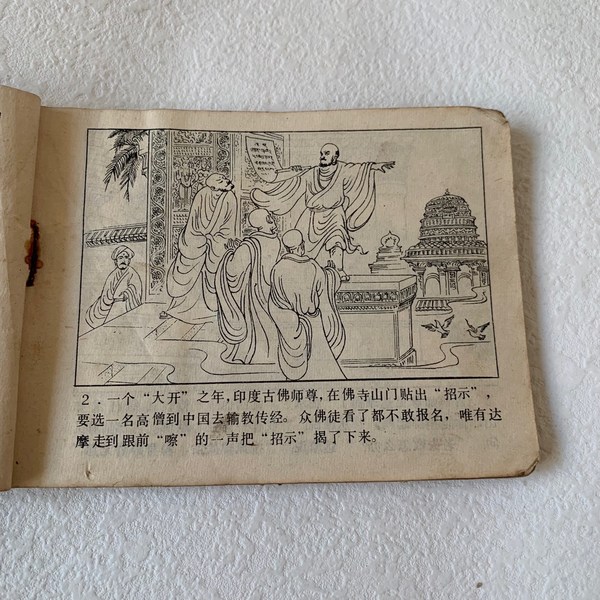 2．一个“大开”之年，印度古佛师尊，在佛寺山门贴出“招示”，
要选一名高僧到中国去输教传经。众佛徒看了都不敢报名，唯有达
摩走到跟前“嚓”的一声把“招示”揭了下来。